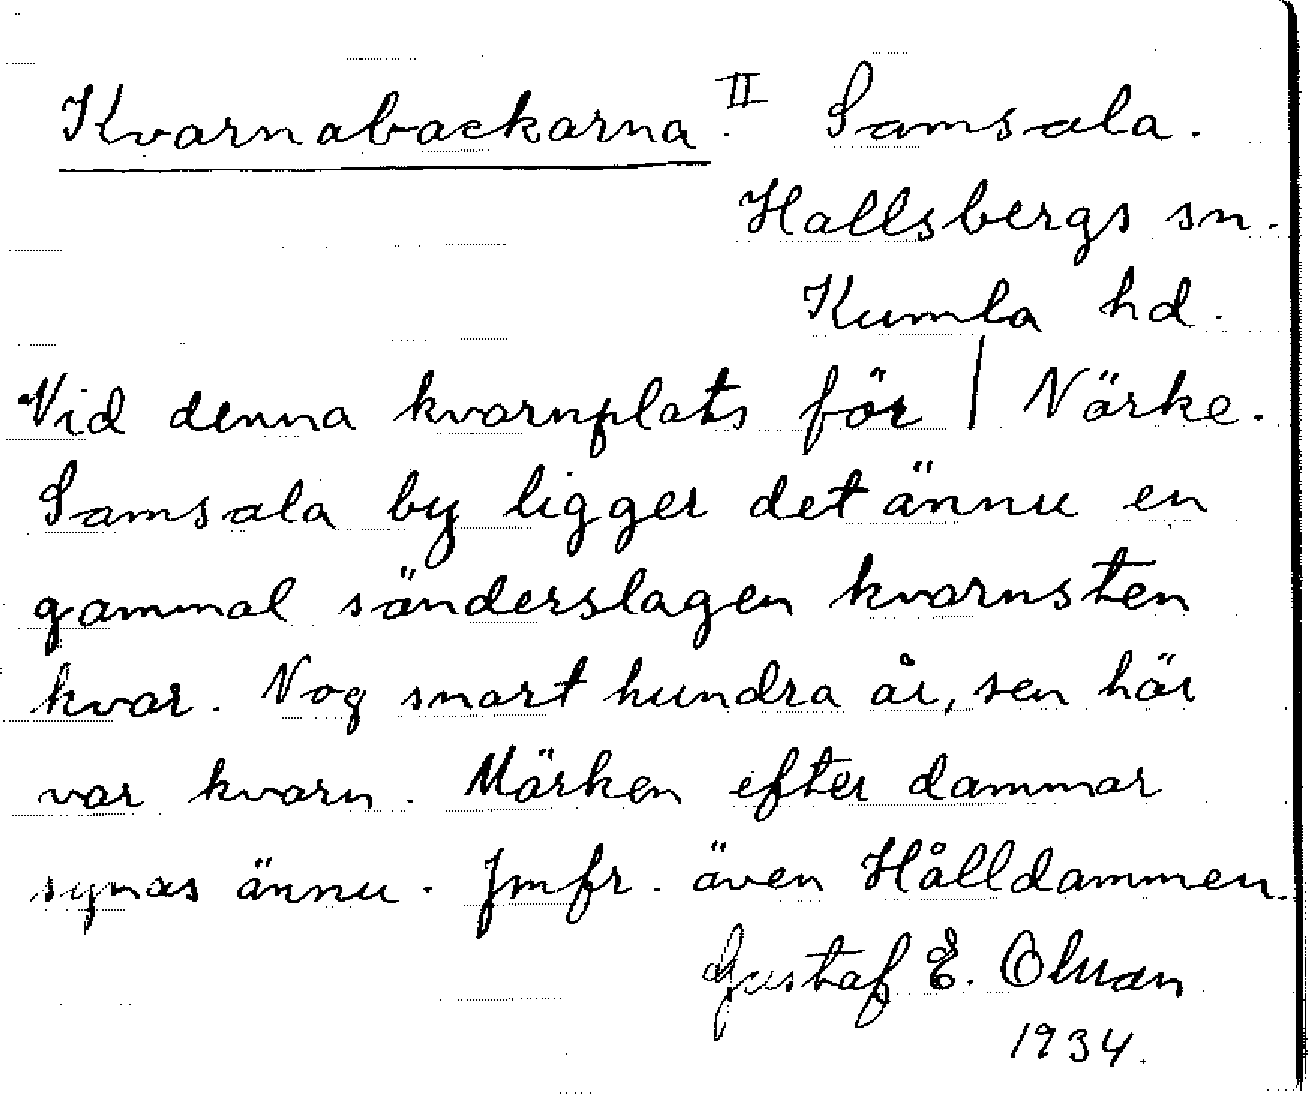 Kvarnabackarna. II Samsala.
Hallsbergs sn.
Kumla hd.
Vid denna kvarnplats för | Närke.
Samsala by ligger det ännu en
gammal sönderslagen kvarnsten
kvar. Nog snart hundra år, sen här
var kvarn. Märken efter dammar
synas ännu. Jmfr. även Hålldammen.
Gustaf E.
1934.